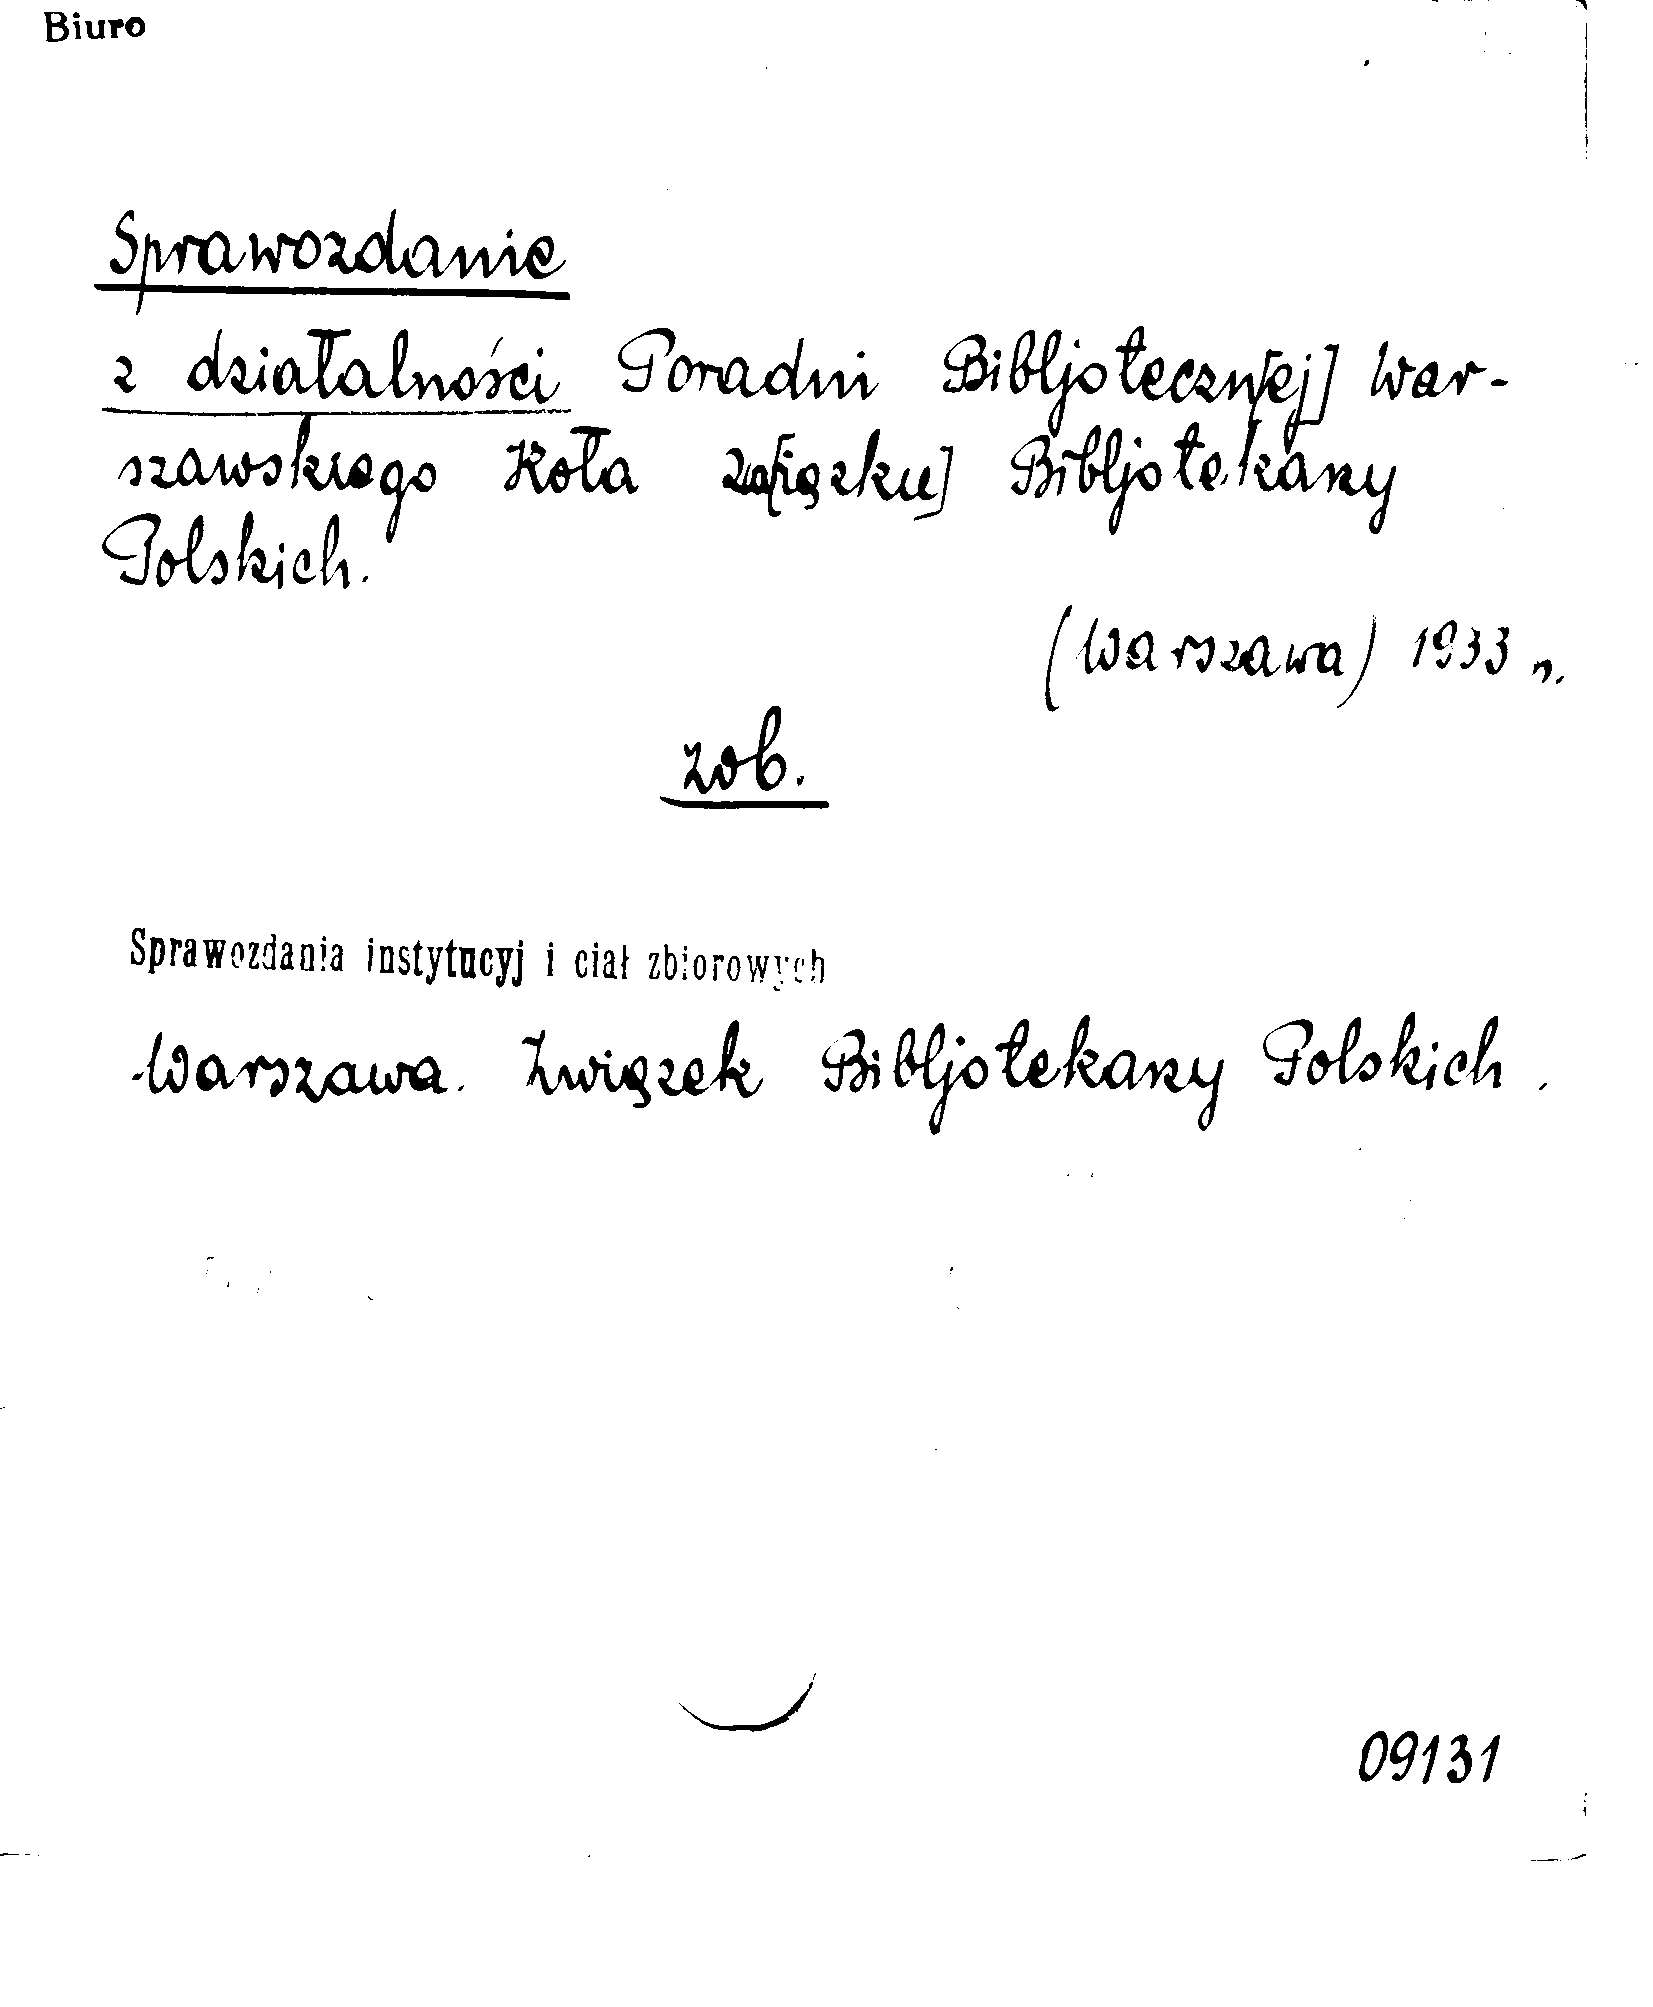 Biuro
Sprawozdanie
z działalności Poradni Bibljoteczn[ej] War-
szawskiego Koła Zw[iązku] Bibljotekarzy
Polskich.
(Warszawa) 1933 r.
zob.
Sprawozdania instytucyj i ciał zbiorowych
Warszawa. Związek Bibljotekarzy Polskich.
09131